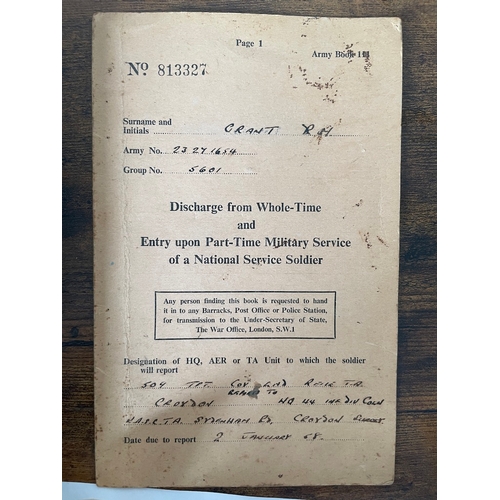 Page 1
Army Book 111
No 813327
Surname and
Initials GRANT R.H.
Army No. 23271654
Group No. 5601
Discharge from Whole-Time
and
Entry upon Part-Time Military Service
of a National Service Soldier
Any person finding this book is requested to hand
it in to any Barracks, Post Office or Police Station,
for transmission to the Under-Secretary of State,
The War Office, London, S.W.1
Designation of HQ, AER or TA Unit to which the soldier
will report
504 COY T.A.
CROYDON HQ 44 INF DIV COLN
SYDENHAM RD, CROYDON SURREY
Date due to report 2 JANUARY 58.